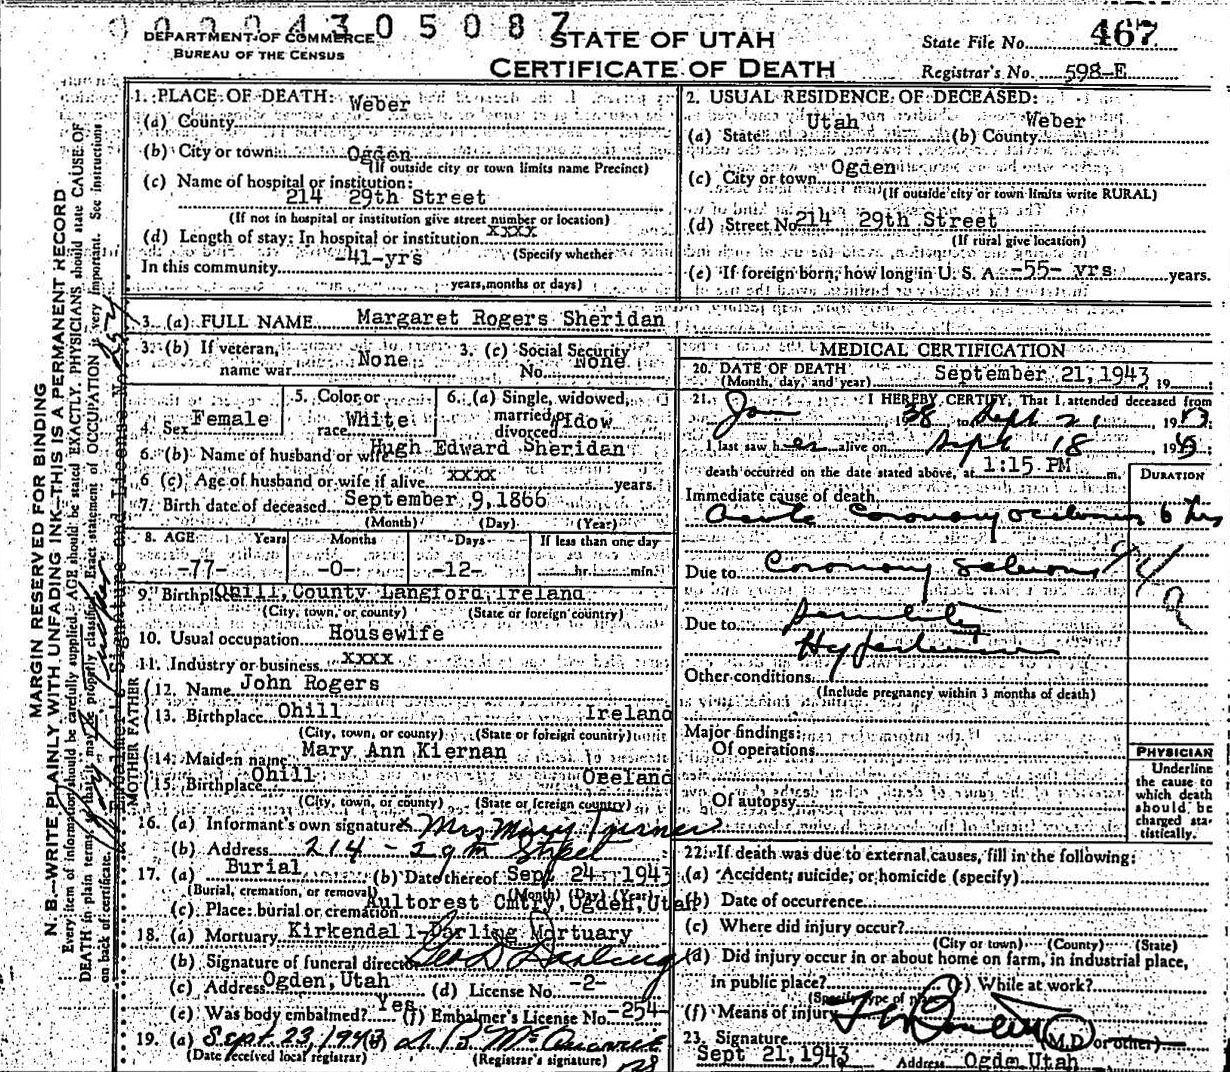 0 0 0 4 3 0 5 0 8 7
DEPARTMENT OF COMMERCE
BUREAU OF THE CENSUS
STATE OF UTAH
CERTIFICATE OF DEATH
State File No. 467
Registrar's No. 598-E
MARGIN RESERVED FOR BINDING
N. B.—WRITE PLAINLY WITH UNFADING INK—THIS IS A PERMANENT RECORD
Every item of information should be carefully supplied. AGE should be stated EXACTLY. PHYSICIANS should state CAUSE OF
DEATH in plain terms, so that it may be properly classified. Exact statement of OCCUPATION is very important. See instructions
on back of certificate.
1. PLACE OF DEATH:
(a) County Weber
(b) City or town Ogden
(If outside city or town limits name Precinct)
(c) Name of hospital or institution:
214 29th Street
(If not in hospital or institution give street number or location)
(d) Length of stay: In hospital or institution xxxx
(Specify whether
In this community -41-yrs
years, months or days)
2. USUAL RESIDENCE OF DECEASED:
(a) State Utah (b) County Weber
(c) City or town Ogden
(If outside city or town limits write RURAL)
(d) Street No. 214 29th Street
(If rural give location)
(e) If foreign born, how long in U. S. A. -55- yrs years.
3. (a) FULL NAME Margaret Rogers Sheridan
3. (b) If veteran, name war None
3. (c) Social Security No. None
4. Sex Female
5. Color or race White
6. (a) Single, widowed, married, divorced Widow
6. (b) Name of husband or wife Hugh Edward Sheridan
6 (c) Age of husband or wife if alive xxxx years.
7. Birth date of deceased September 9, 1866
(Month) (Day) (Year)
8. AGE Years Months Days If less than one day
-77- -0- -12- hr. min.
9. Birthplace Ohill, County Langford, Ireland
(City, town, or county) (State or foreign country)
10. Usual occupation Housewife
11. Industry or business xxxx
FATHER
12. Name John Rogers
13. Birthplace Ohill Ireland
(City, town, or county) (State or foreign country)
MOTHER
14. Maiden name Mary Ann Kiernan
15. Birthplace Ohill Oreland
(City, town, or county) (State or foreign country)
16. (a) Informant's own signature Mrs Mary Turner
(b) Address 214 - 29th Street
17. (a) Burial (b) Date thereof Sept 24 1943
(Burial, cremation, or removal) (Month) (Day) (Year)
(c) Place: burial or cremation Aultorest Cmtry, Ogden, Utah
18. (a) Mortuary Kirkendall-Darling Mortuary
(b) Signature of funeral director Geo D Darling
(c) Address Ogden, Utah (d) License No. -2-
(e) Was body embalmed? Yes (f) Embalmer's License No. -254-
19. (a) Sept. 23, 1943
(Date received local registrar) (Registrar's signature)
MEDICAL CERTIFICATION
20. DATE OF DEATH
(Month, day, and year) September 21, 1943 19
21. I HEREBY CERTIFY, That I attended deceased from
Jan 1938 to Sept 21, 1943.
I last saw her alive on Sept 18 1943;
death occurred on the date stated above, at 1:15 PM m.
DURATION
Immediate cause of death
Acute Coronary occlusion 6 hrs
Due to Coronary Sclerosis
Due to Senility
Hypertension
Other conditions
(Include pregnancy within 3 months of death)
Major findings:
Of operations
Of autopsy
PHYSICIAN
Underline
the cause to
which death
should be
charged sta-
tistically.
22. If death was due to external causes, fill in the following:
(a) Accident, suicide, or homicide (specify)
(b) Date of occurrence
(c) Where did injury occur?
(City or town) (County) (State)
(d) Did injury occur in or about home on farm, in industrial place,
in public place? (e) While at work?
(Specify type of place)
(f) Means of injury
23. Signature (M.D. or other)
Sept 21, 1943 Address Ogden Utah